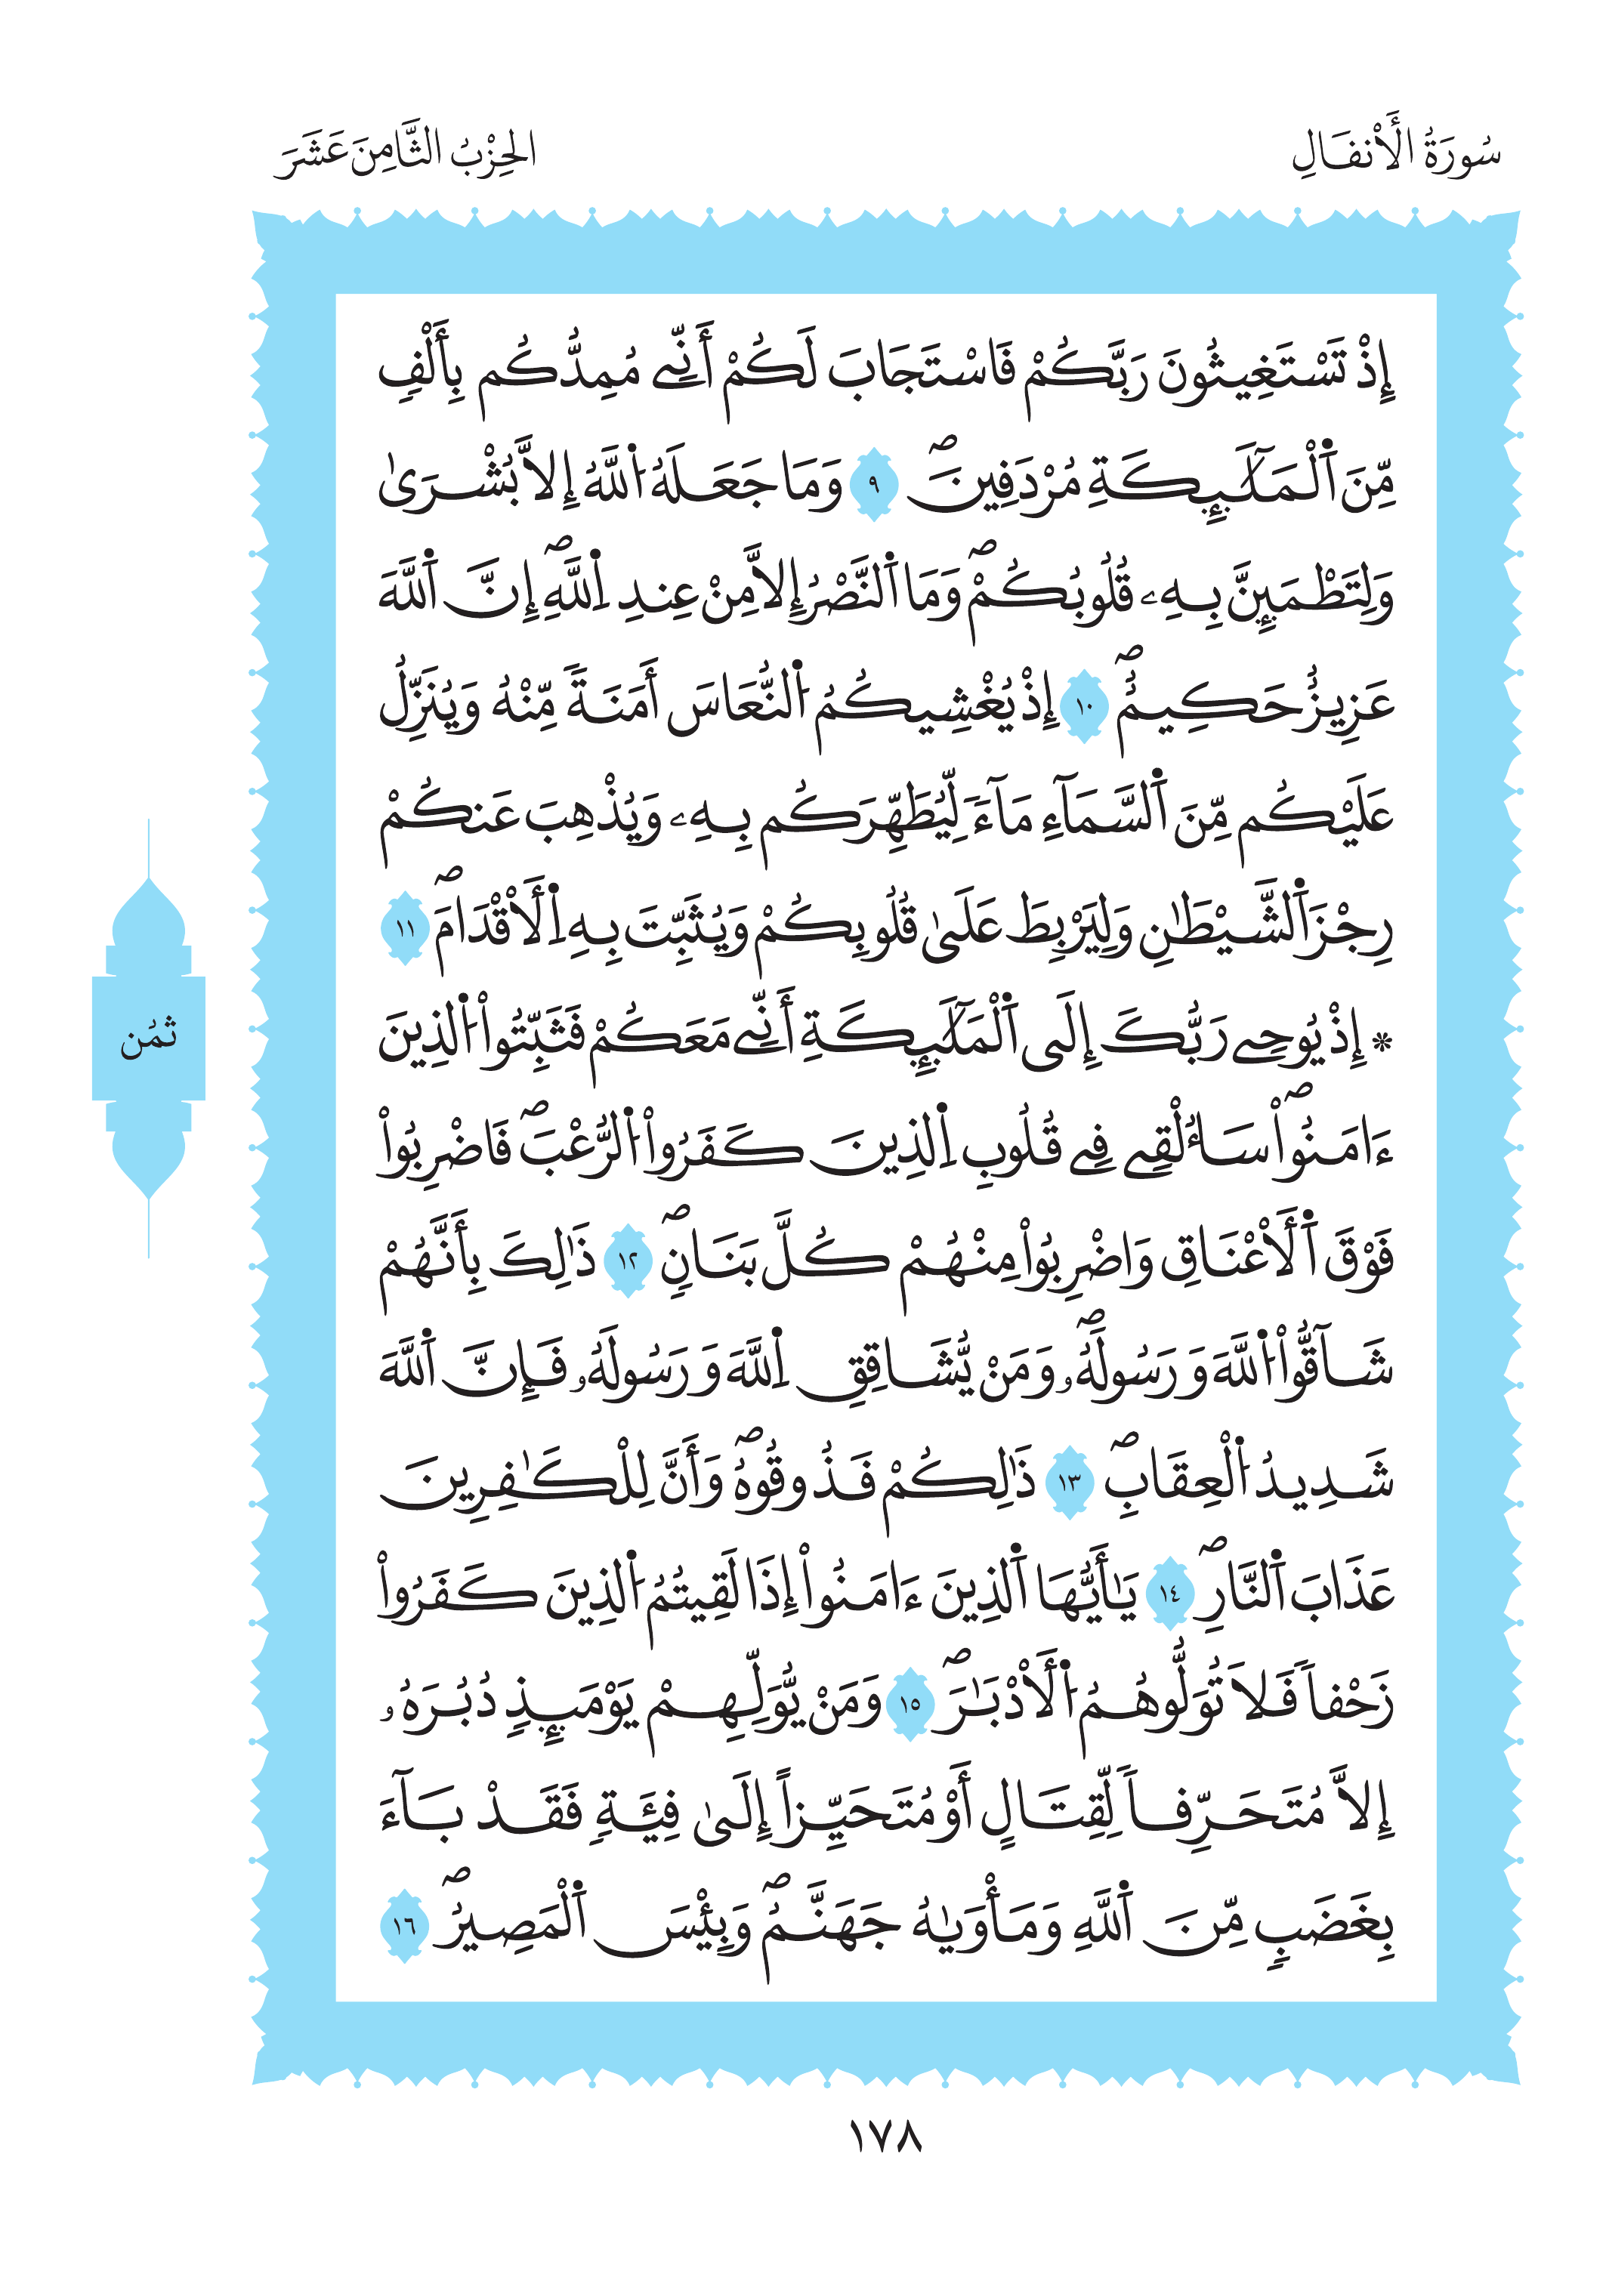 سُورَةُ الْأَنفَالِ
الحِزْبُ الثَّامِنَ عَشَرَ
إِذْ تَسْتَغِيثُونَ رَبَّكُمْ فَاسْتَجَابَ لَكُمْ أَنِّے مُمِدُّكُم بِأَلْفٖ
مِّنَ اَ۬لْمَلَٰٓئِكَةِ مُرْدَفِينَۖ ٩ وَمَا جَعَلَهُ اُ۬للَّهُ إِلَّا بُشْرَىٰ
وَلِتَطْمَئِنَّ بِهِۦ قُلُوبُكُمْۖ وَمَا اَ۬لنَّصْرُ إِلَّا مِنْ عِندِ اِ۬للَّهِۖ إِنَّ اَ۬للَّهَ
عَزِيزٌ حَكِيمٌۖ ١٠ إِذْ يُغْشِيكُمُ اُ۬لنُّعَاسَ أَمَنَةٗ مِّنْهُ وَيُنَزِّلُ
عَلَيْكُم مِّنَ اَ۬لسَّمَآءِ مَآءٗ لِّيُطَهِّرَكُم بِهِۦ وَيُذْهِبَ عَنكُمْ
رِجْزَ اَ۬لشَّيْطَٰنِ وَلِيَرْبِطَ عَلَىٰ قُلُوبِكُمْ وَيُثَبِّتَ بِهِ اِ۬لْأَقْدَامَۖ ١١
۞ إِذْ يُوحِے رَبُّكَ إِلَى اَ۬لْمَلَٰٓئِكَةِ أَنِّے مَعَكُمْ فَثَبِّتُواْ اُ۬لذِينَ
ءَامَنُواْۖ سَأُلْقِے فِے قُلُوبِ اِ۬لذِينَ كَفَرُواْ اُ۬لرُّعْبَۖ فَاضْرِبُواْ
فَوْقَ اَ۬لْأَعْنَاقِ وَاضْرِبُواْ مِنْهُمْ كُلَّ بَنَانٖۖ ١٢ ذَٰلِكَ بِأَنَّهُمْ
شَآقُّواْ اُ۬للَّهَ وَرَسُولَهُۥۖ وَمَنْ يُّشَاقِقِ اِ۬للَّهَ وَرَسُولَهُۥ فَإِنَّ اَ۬للَّهَ
شَدِيدُ اُ۬لْعِقَابِۖ ١٣ ذَٰلِكُمْ فَذُوقُوهُۖ وَأَنَّ لِلْكَٰفِرِينَ
عَذَابَ اَ۬لنَّارِۖ ١٤ يَٰأَيُّهَا اَ۬لذِينَ ءَامَنُواْ إِذَا لَقِيتُمُ اُ۬لذِينَ كَفَرُواْ
زَحْفاٗ فَلَا تُوَلُّوهُمُ اُ۬لْأَدْبَٰرَۖ ١٥ وَمَنْ يُّوَلِّهِمْ يَوْمَئِذٖ دُبُرَهُۥ
إِلَّا مُتَحَرِّفاٗ لِّقِتَالٍ أَوْ مُتَحَيِّزاً إِلَىٰ فِئَةٖ فَقَدْ بَآءَ
بِغَضَبٖ مِّنَ اَ۬للَّهِ وَمَأْوَىٰهُ جَهَنَّمُۖ وَبِئْسَ اَ۬لْمَصِيرُۖ ١٦
ثُمُن
١٧٨